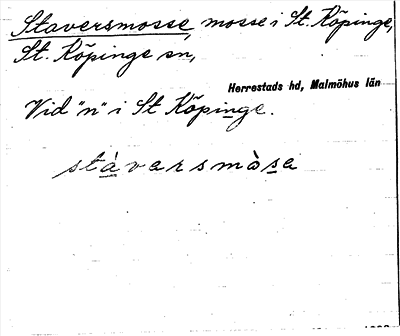 Staversmosse, mosse i St. Köpinge,
St. Köpinge sn,
Herrestads hd, Malmöhus län
Vid "n" i St Köpinge.
stàversmàsa